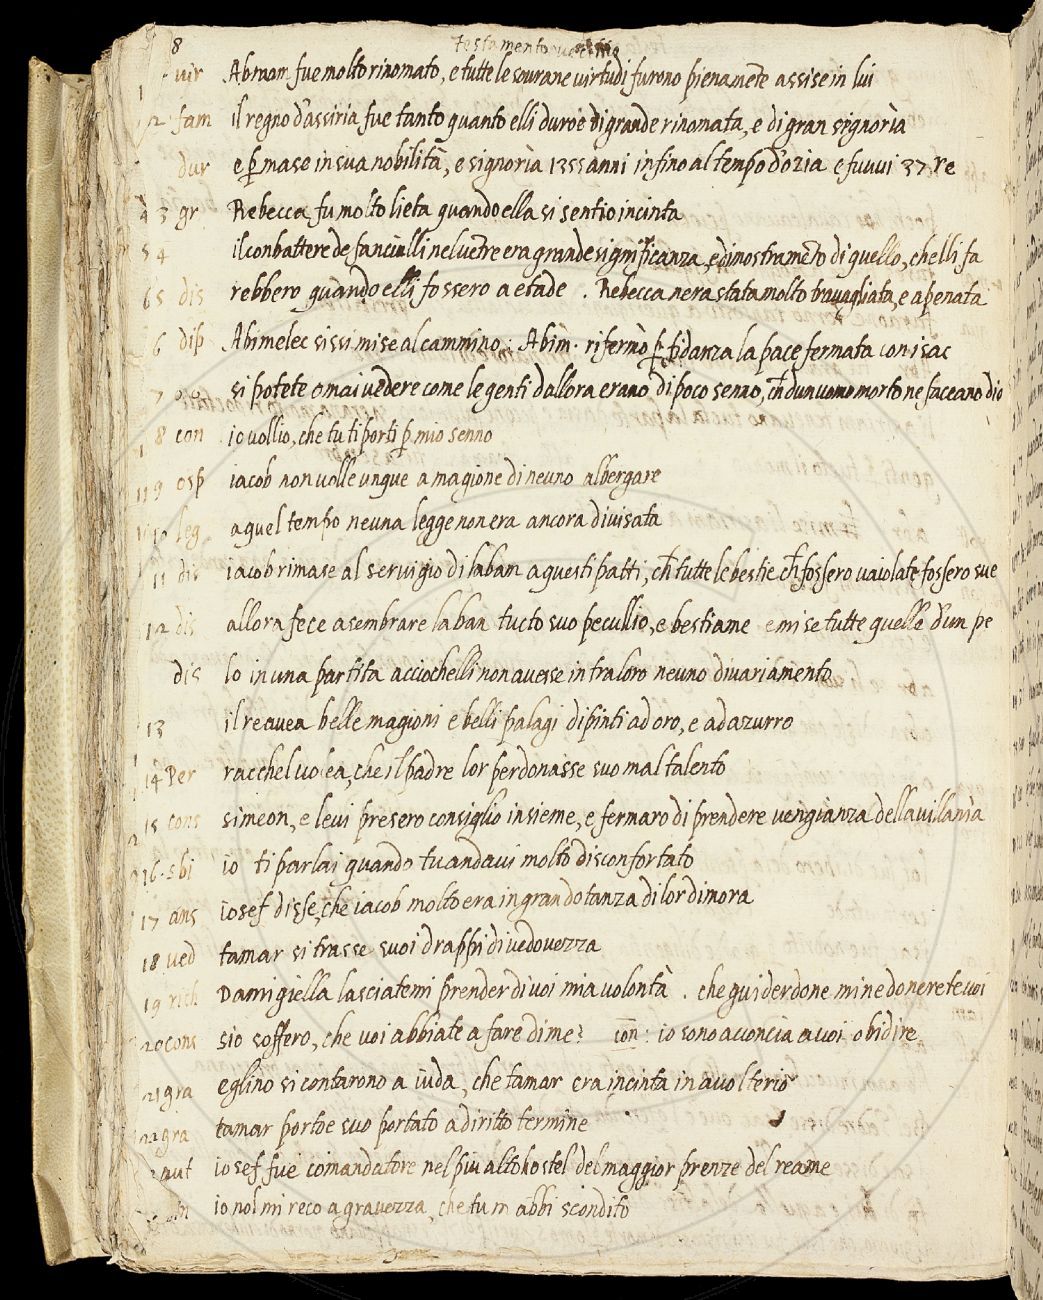 8 testamento vecchio
vir Abraam fue molto rinomato, e tutte le sovrane virtudi furono pienamẽte assise in lui
2 fam il regno d'assiria fue tanto quanto elli duroe di grande rinomata, e di gran signorìa
dur e p̱mase in sua nobilità, e signorìa 1355 anni infino al tempo d'ozia e fuvvi 37 re
3 gr Rebecca fu molto lieta quando ella si sentio incinta
54 il conbattere de fanciulli nel uẽtre era grande significanza, e dimostramẽto di quello, ch elli fa
65 dis rebbero quando elli fossero a etade . Rebecca nera stata molto travagliata, e apenata
6 dip Abimelec sissi mise al cammino : Abim. rifermò p̱ fidanza la pace fermata con isac
7 si potete omai vedere come le genti d allora erano di poco senno, ch̃ dun uomo morto ne faceano dio
8 con io vollio, che tu ti porti p̱ mio senno
119 osp iacob non volle unque a magione di neuno albergare
10 leg a quel tempo neuna legge non era ancora divisata
11 dis iacob rimase al servigio di laban a questi patti, ch̃ tutte le bestie ch̃ fossero vaiolate fossero sue
12 dis allora fece asembrare laban tucto suo pecullio, e bestiame e mise tutte quelle d'un pe
dis lo in una partita acciochelli non avesse intra loro neuno divariamento
13 il re avea belle magioni e belli palagi dipinti ad oro, e ad azurro
14 Per racchel volea, che il padre lor perdonasse suo mal talento
15 cons simeon, e levi presero consiglio insieme, e fermaro di prendere vengianza della villanìa
16. sbi io ti parlai quando tu andavi molto disconfortato
17 ans iosef disse, che iacob molto era in gran dotanza di lor dimora
18 ved tamar si trasse suoi drappi di vedovezza
19 rich Damigiella lasciatemi prender di voi mia volontà . che guiderdone mi ne donerete voi
20 cons s'io soffero, che voi abbiate a fare di me? con : io sono acconcia a voi obidire
21 gra eglino si contarono a iuda, che tamar era incinta in avolterio
22 gra tamar portoe suo portato a diritto termine
aut iosef fue comandatore nel piu alto hostel del maggior prenze del reame
io nol mi reco a gravezza, che tu m abbi scondito